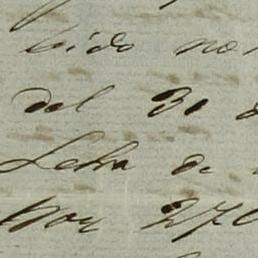 bido no
del 30 d
Letra de
por 270